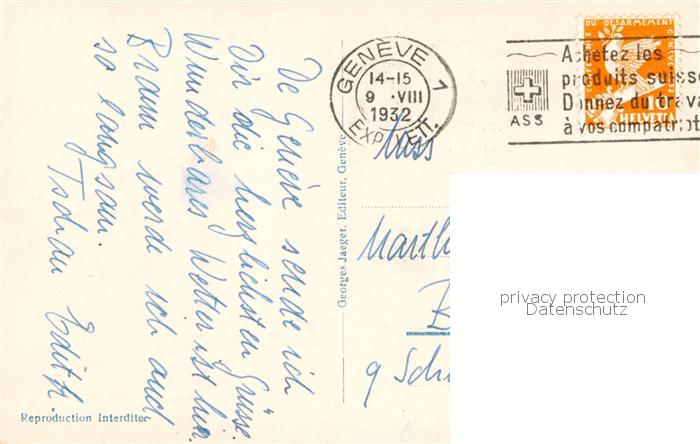 De Genève sende ich
Dir die herzlichsten Grüsse.
Wunderbares Wetter ist hier.
Braun werde ich auch
so langsam.
Tschau Edith.
Reproduction Interdite
Georges Jaeger, Editeur, Genève
GENÈVE 1
14-15
9 . VIII
1932
EXP. LETT.
DU DÉSARMEMENT
10
HELVETIA
ASS
Achetez les
produits suisse
Donnez du trava
à vos compatriot
Miss
Marth
B
9 Sch
privacy protection
Datenschutz